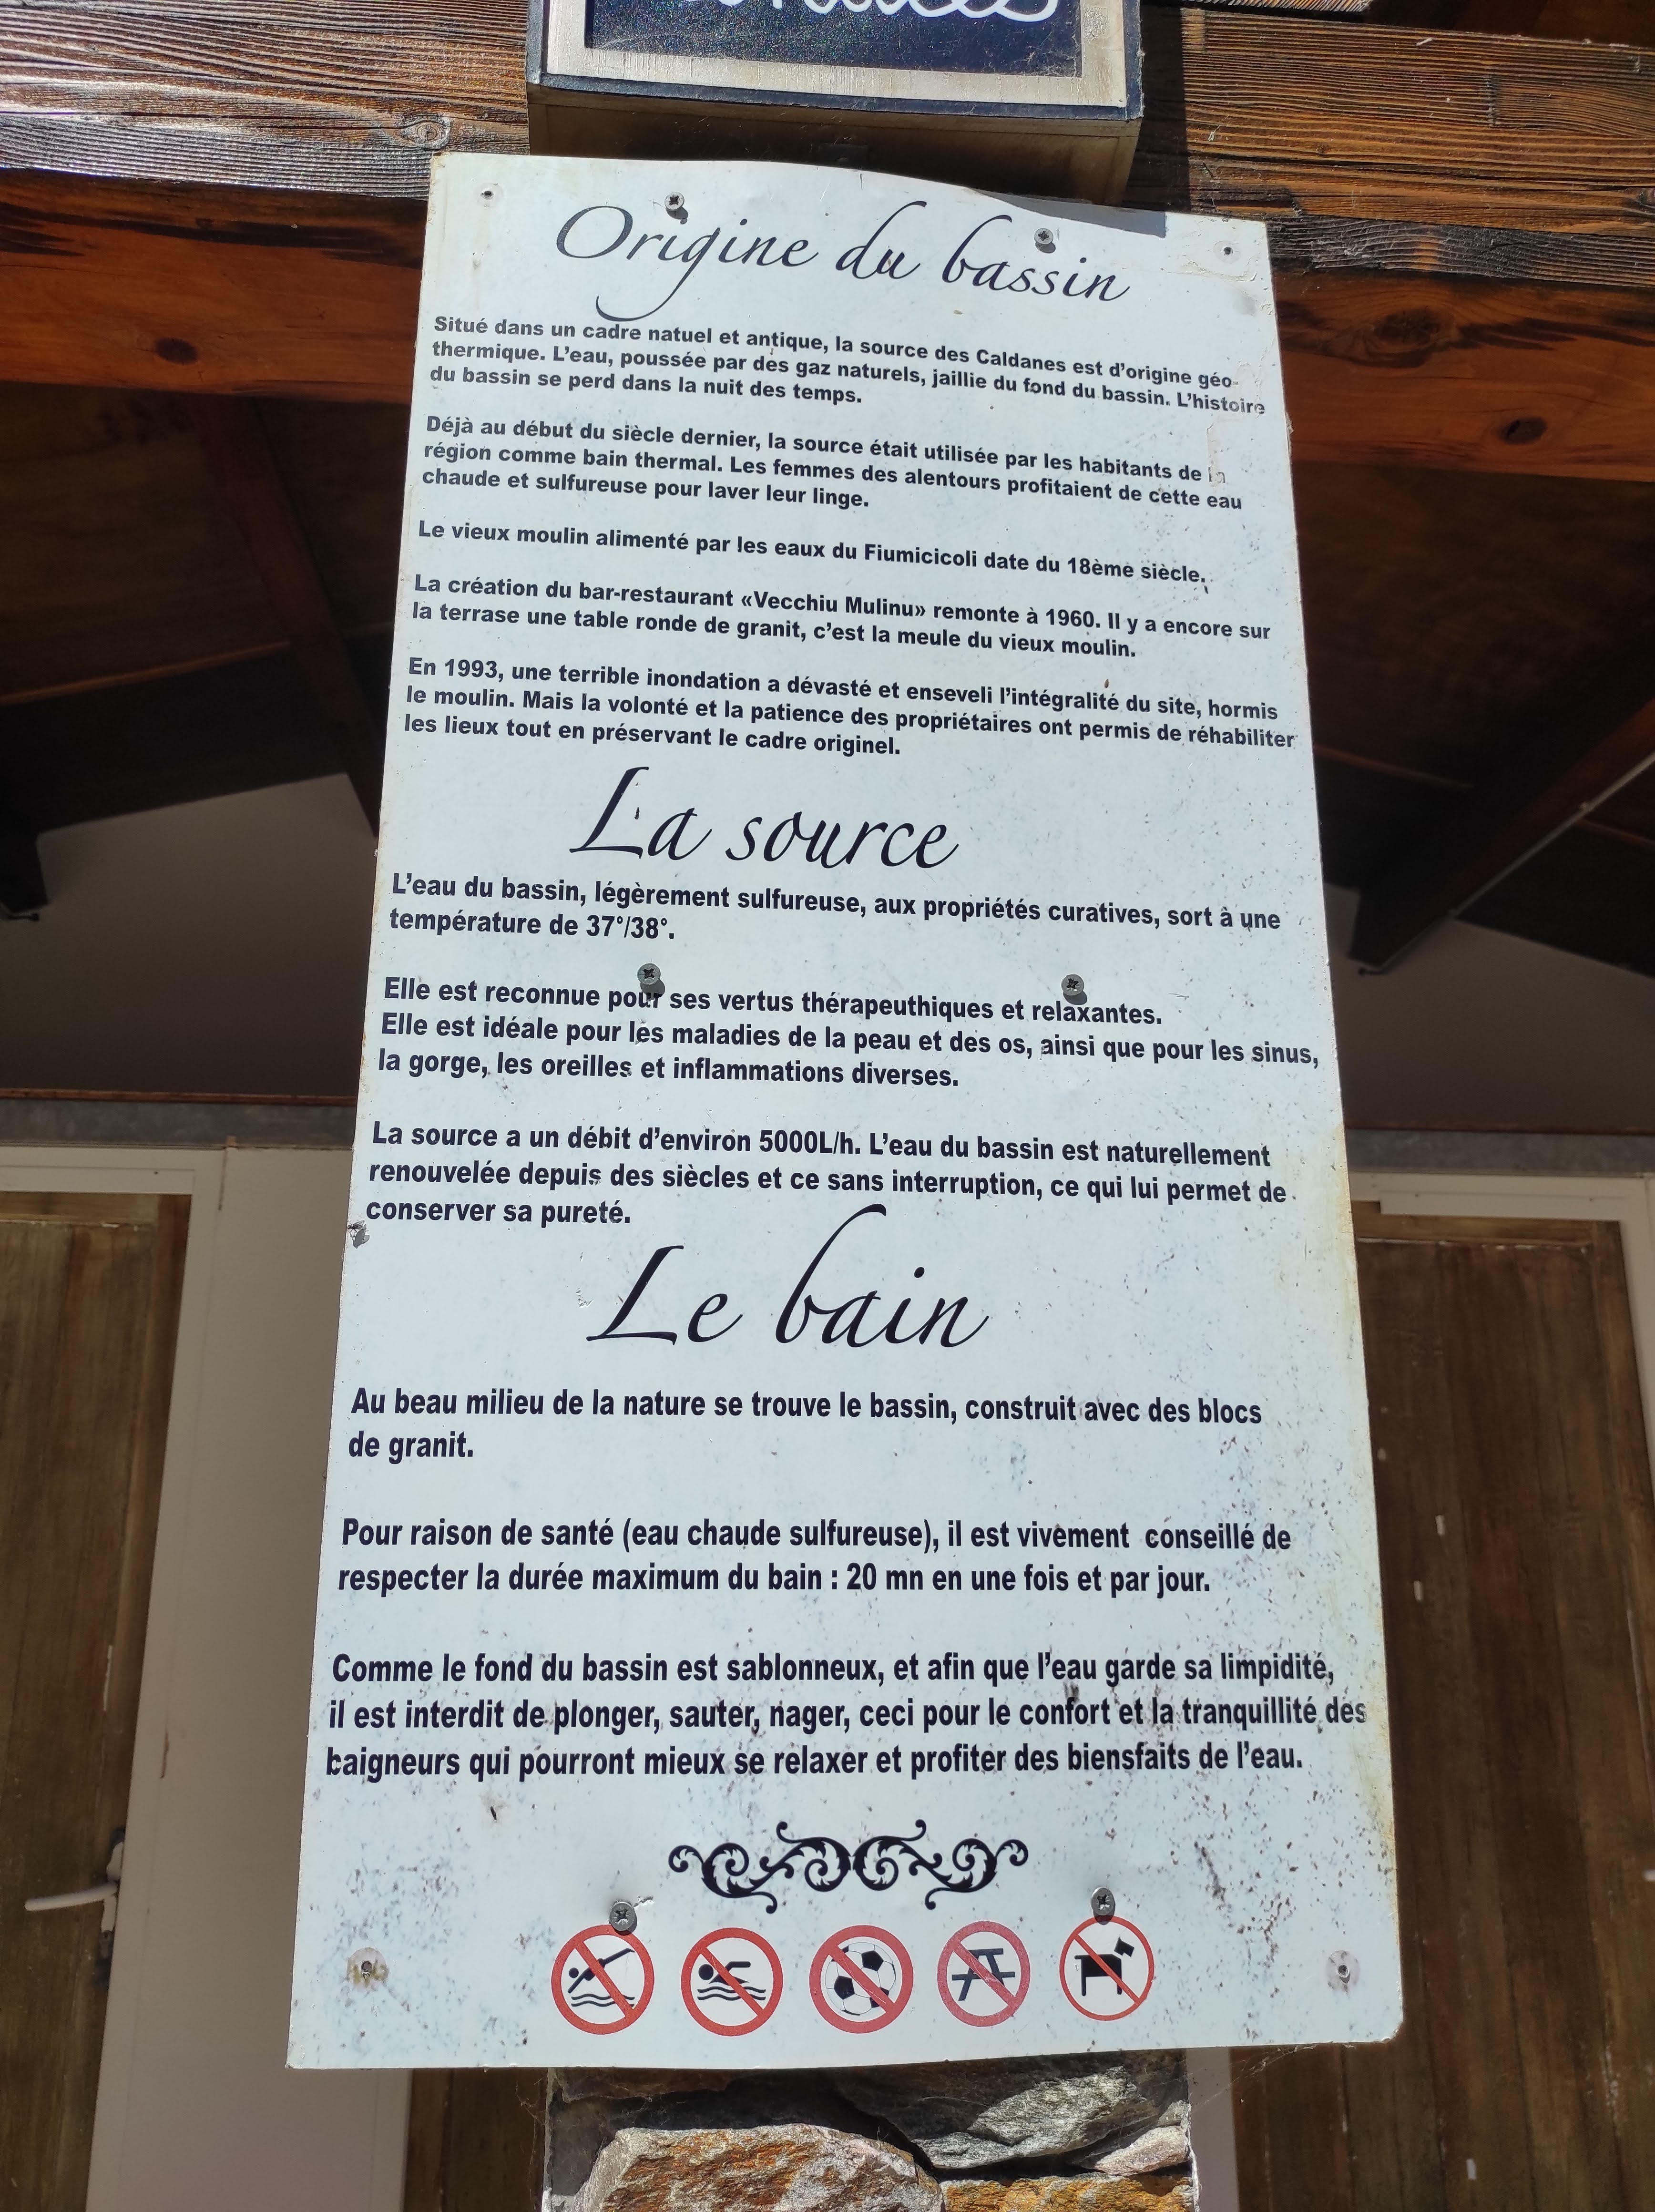 Origine du bassin
Situé dans un cadre natuel et antique, la source des Caldanes est d'origine géo-
thermique. L'eau, poussée par des gaz naturels, jaillie du fond du bassin. L'histoire
du bassin se perd dans la nuit des temps.
Déjà au début du siècle dernier, la source était utilisée par les habitants de la
région comme bain thermal. Les femmes des alentours profitaient de cette eau
chaude et sulfureuse pour laver leur linge.
Le vieux moulin alimenté par les eaux du Fiumicicoli date du 18ème siècle.
La création du bar-restaurant «Vecchiu Mulinu» remonte à 1960. Il y a encore sur
la terrase une table ronde de granit, c'est la meule du vieux moulin.
En 1993, une terrible inondation a dévasté et enseveli l'intégralité du site, hormis
le moulin. Mais la volonté et la patience des propriétaires ont permis de réhabiliter
les lieux tout en préservant le cadre originel.
La source
L'eau du bassin, légèrement sulfureuse, aux propriétés curatives, sort à une
température de 37°/38°.
Elle est reconnue pour ses vertus thérapeuthiques et relaxantes.
Elle est idéale pour les maladies de la peau et des os, ainsi que pour les sinus,
la gorge, les oreilles et inflammations diverses.
La source a un débit d'environ 5000L/h. L'eau du bassin est naturellement
renouvelée depuis des siècles et ce sans interruption, ce qui lui permet de
conserver sa pureté.
Le bain
Au beau milieu de la nature se trouve le bassin, construit avec des blocs
de granit.
Pour raison de santé (eau chaude sulfureuse), il est vivement conseillé de
respecter la durée maximum du bain : 20 mn en une fois et par jour.
Comme le fond du bassin est sablonneux, et afin que l'eau garde sa limpidité,
il est interdit de plonger, sauter, nager, ceci pour le confort et la tranquillité des
baigneurs qui pourront mieux se relaxer et profiter des biensfaits de l'eau.